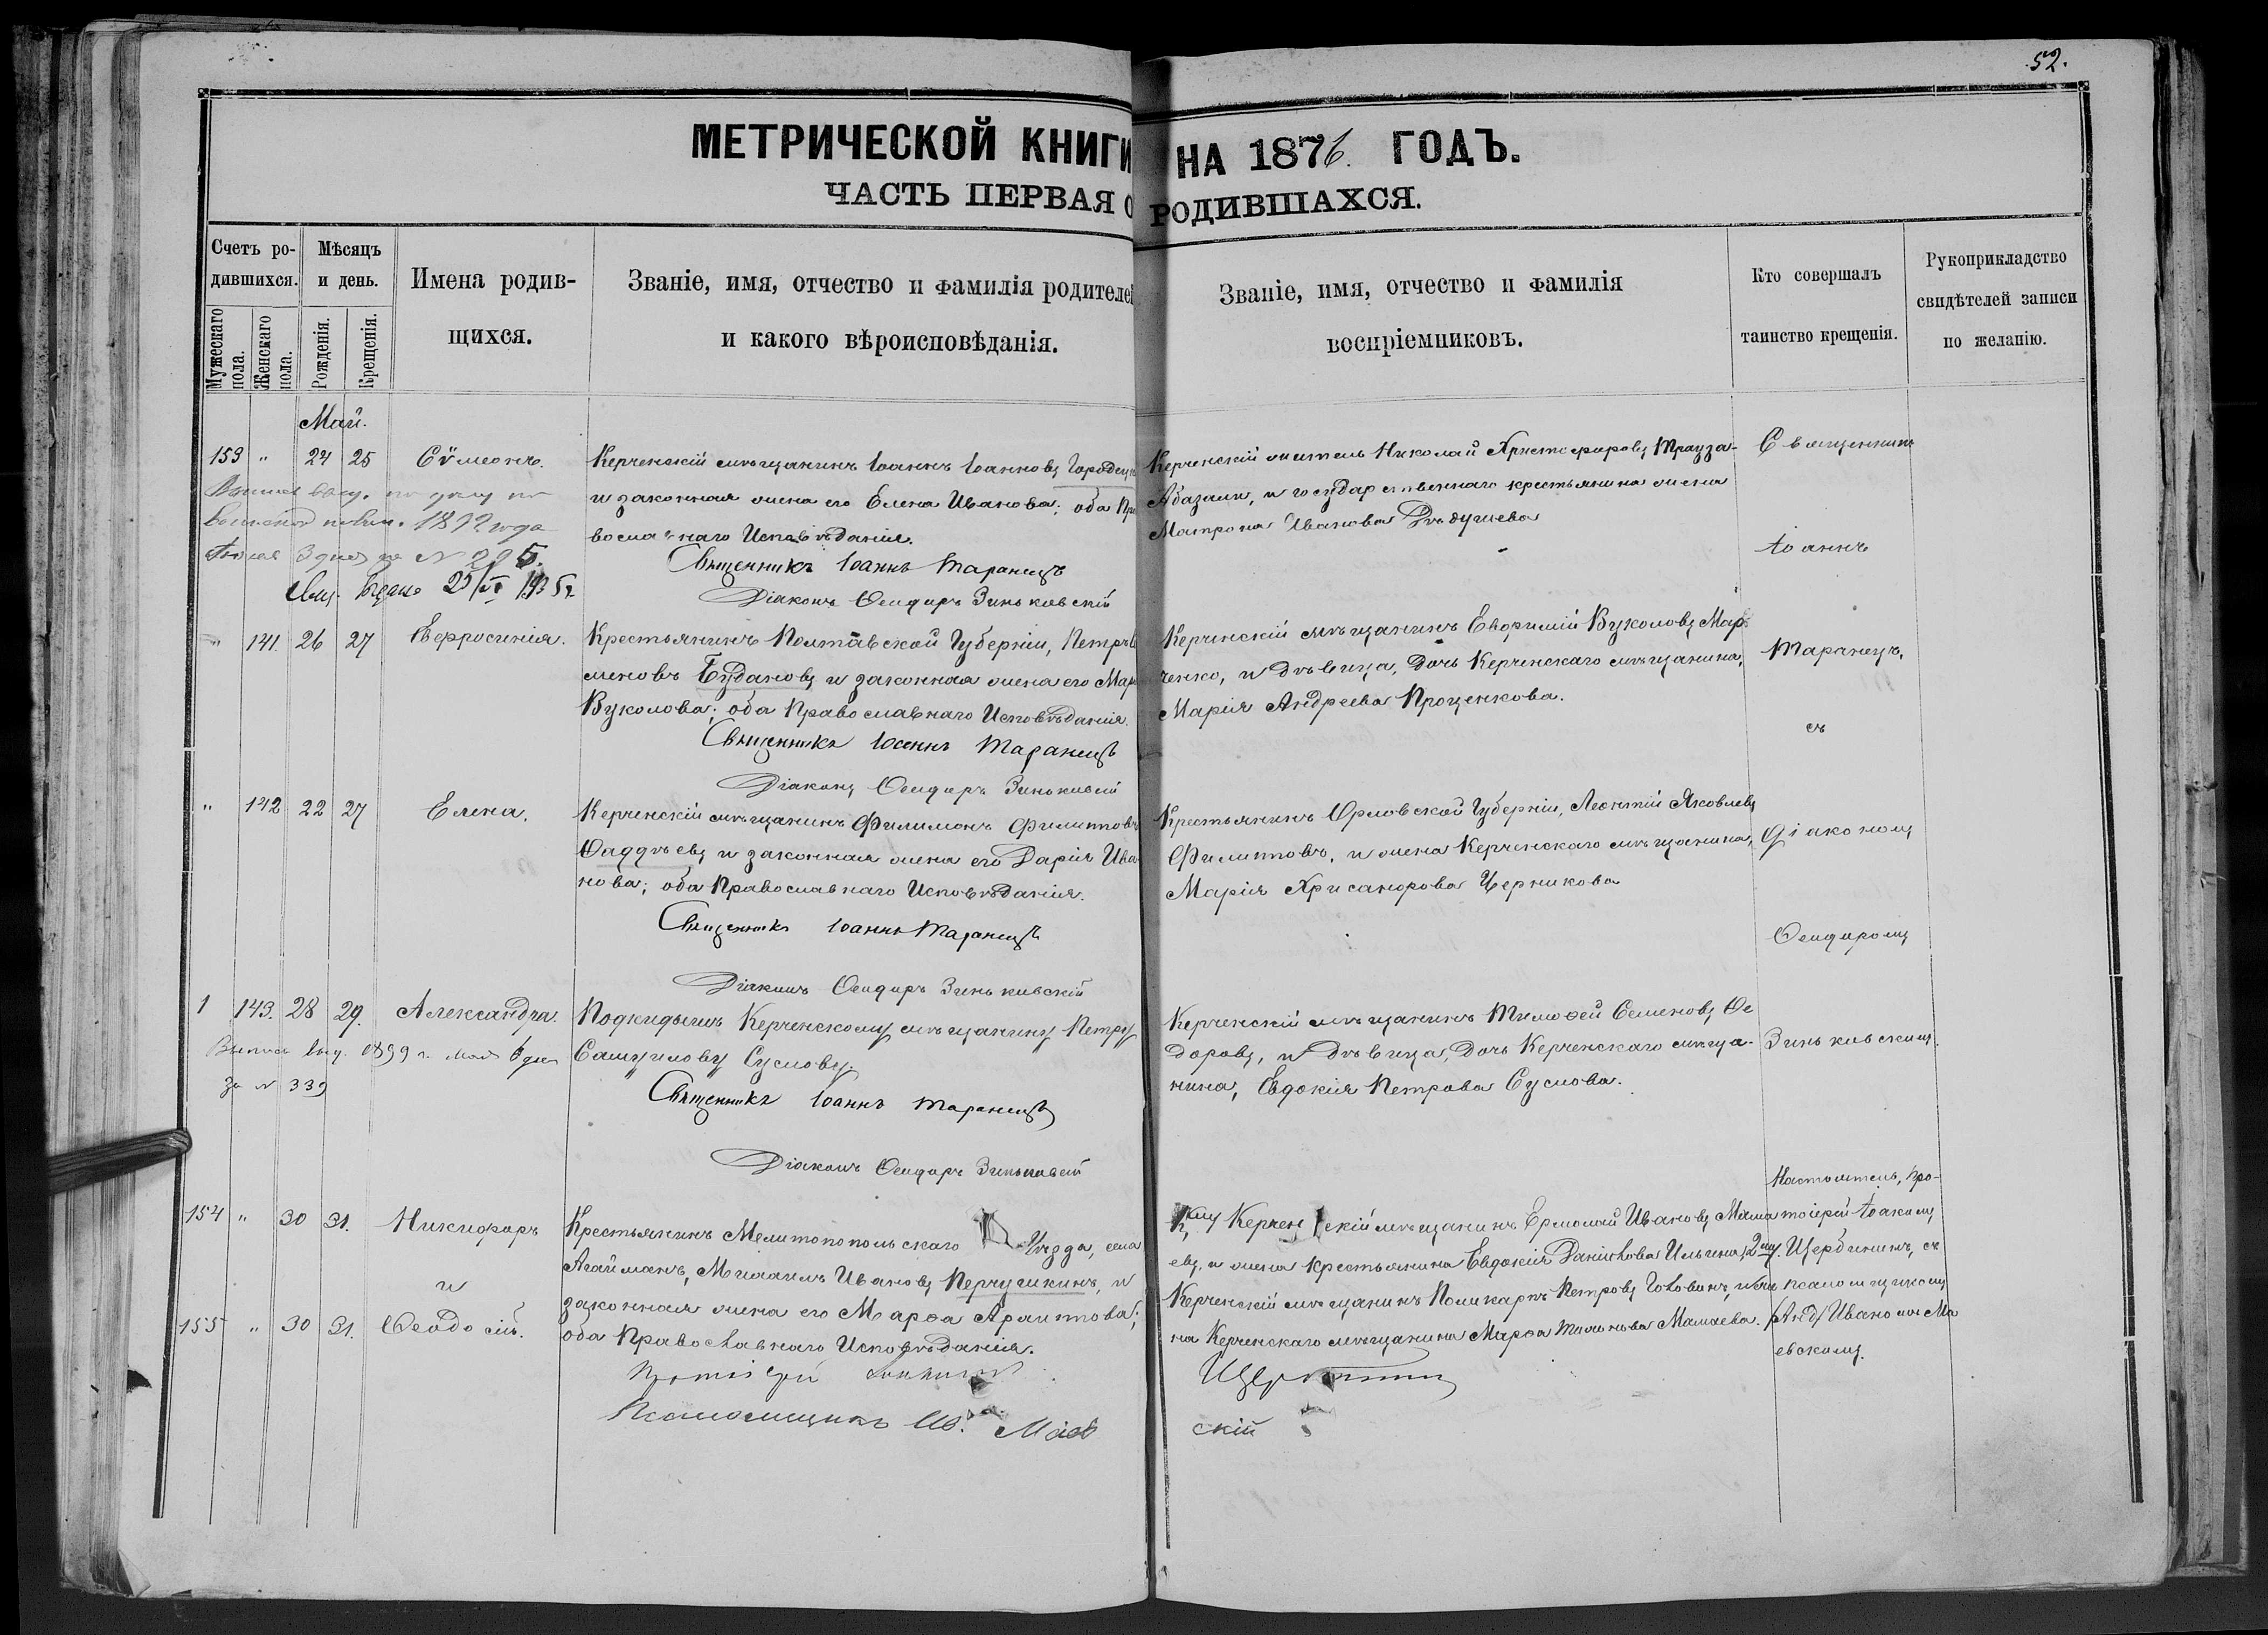 52.
МЕТРИЧЕСКОЙ КНИГИ НА 1876. ГОДЪ.
ЧАСТЬ ПЕРВАЯ О РОДИВШАХСЯ.
Счетъ ро-
дившихся.
Мужескаго
пола.
Женскаго
пола.
Мѣсяцъ
и день.
Рожденія.
Крещенія.
Имена родив-
щихся.
Званіе, имя, отчество и фамилія родителей
и какого вѣроисповѣданія.
Званіе, имя, отчество и фамилія
воспріемниковъ.
Кто совершалъ
таинство крещенія.
Рукоприкладство
свидѣтелей записи
по желанію.
Май.
153 " 24 25 Сѵмеонъ.
1892 года
3 дня за N 295.
Керченскій мѣщанинъ Іоаннъ Іоанновъ
и законная жена его Елена Иванова; оба Пра
вославнаго Исповѣданія.
Священникъ Іоаннъ Таранецъ
Діаконъ Ѳеодоръ Зиньковскій
Керченскій житель Николай Христофоровъ
и государственнаго крестьянина жена
Матрона Иванова
Священникъ
Іоаннъ
Таранецъ,
съ
Діакономъ
Ѳеодоромъ
Зиньковскимъ.
" 141. 26 27 Евфросинія.
Крестьянинъ Полтавской Губерніи, Петръ
меновъ Будановъ и законная жена его Мар
Вуколова; оба Православнаго Исповѣданія.
Священникъ Іоаннъ Таранецъ
Діаконъ Ѳеодоръ Зиньковскій
Керченскій мѣщанинъ Евфимій Вуколовъ Мар-
ченко, и дѣвица, дочь Керченскаго мѣщанина,
Марія Андреева Проценкова.
" 142 22 27 Елена.
Керченскій мѣщанинъ Филимонъ Филиповъ
Ѳаддѣевъ и законная жена его Дарія Ива
нова; оба Православнаго Исповѣданія.
Священникъ Іоаннъ Таранецъ
Діаконъ Ѳеодоръ Зиньковскій
Крестьянинъ Орловской Губерніи, Леонтій Яковлевъ
Филиповъ, и жена Керченскаго мѣщанина,
Марія Хрисанфова Церникова
1 143. 28 29. Александра.
1899 г. мая 6 дня
за N 339
Подкидышъ Керченскому мѣщанину Петру
Самуилову Суслову.
Священникъ Іоаннъ Таранецъ
Діаконъ Ѳеодоръ Зиньковскій
Керченскій мѣщанинъ Тимоѳей Семеновъ Ѳе
доровъ, и дѣвица, дочь Керченскаго мѣща-
нина, Евдокія Петрова Суслова.
154 " 30 31. Никифоръ
и
155 " 30 31. Ѳеодосій.
Крестьянинъ Мелитопопольскаго Уѣзда, села
Агайманъ, Михаилъ Ивановъ Перчушкинъ, и
законная жена его Марѳа Архипова;
оба Православнаго Исповѣданія.
Протоіерей Іоакимъ Щербининъ
Псаломщикъ Ив. Маевскій
1му Керченскій мѣщанинъ Ермолай Ивановъ Мама
евъ, и жена крестьянина Евдокія Даніилова Ильина, 2му
Керченскій мѣщанинъ Поликарпъ Петровъ Головинъ, и же
на Керченскаго мѣщанина Марѳа Мамаева.
Настоятель, про-
тоіерей Іоакимъ
Щербининъ, съ
псаломщикомъ
Иваномъ Ма
евскимъ.